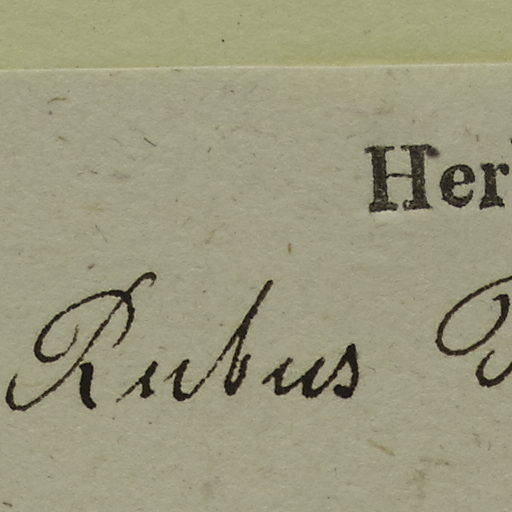 Her
Rubus